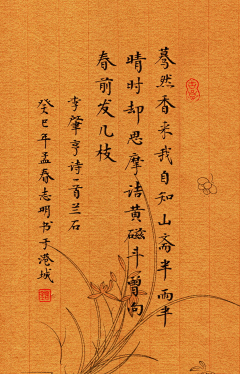 蓦然香来我自知山斋半雨半
晴时却思摩诘黄磁斗曾向
春前发几枝
李肇亨诗一首兰石
癸巳年孟春志明书于港城